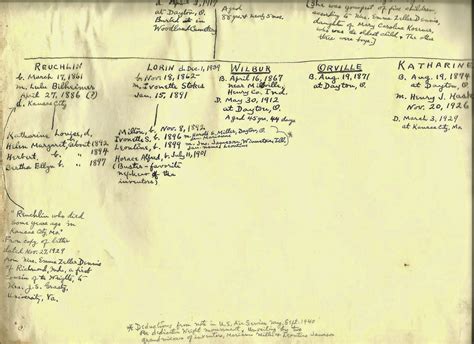 at Dayton, O.
Buried at in
Woodland Cemetery
Aged
(She was youngest of five children,
daughter of Mary Caroline Koerner,
who was the oldest child. The other
three were boys)
REUCHLIN
b. March 17, 1861
m. Lulu Billheimer
April 27, 1886 (?)
d. Kansas City
LORIN d. Dec. 1, 1939
b. Nov. 18, 1862
m. Ivonette Stokes
Jan. 15, 1891
WILBUR
B. April 16, 1867
near Millville,
Henry Co. Ind.
D. May 30, 1912
at Dayton, O.
Aged 45 yrs, 44 days
ORVILLE
B. Aug. 19, 1871
at Dayton, O.
KATHARINE
B. Aug. 19, 1874
at Dayton, O.
M. Henry J. Hask
Nov. 20, 1926
D. March 3, 1929
at Kansas City, Mo
Katharine Louise, d.
Helen Margaret, about 1892
Herbert, b. " 1894
Bertha Ellyn b. " 1897
Milton, b. Nov. 8, 1892
Ivonette S. b. 1896 m. Harold S. Miller, Dayton, O.
Leontine, b. 1899 m. Jno. Jameson
Horace Alfred, b. July 11, 1901
(Buster - favorite
nephew of the
inventors)
"Reuchlin who died
some years ago in
Kansas City Mo."
From copy of letter
dated Nov. 27, 1929
from Mrs. Emma Zeller Dennis
of Richmond, Ind., a first
cousin of the Wrights, to
Mrs. J. S.
University, Va.
* Deductions from note in U.S. Air Service Mag. Sept. 1940
Re dedication Wright monument, unveiling by two
grand nieces of inventors, Marianne Miller & Leontine Jameson